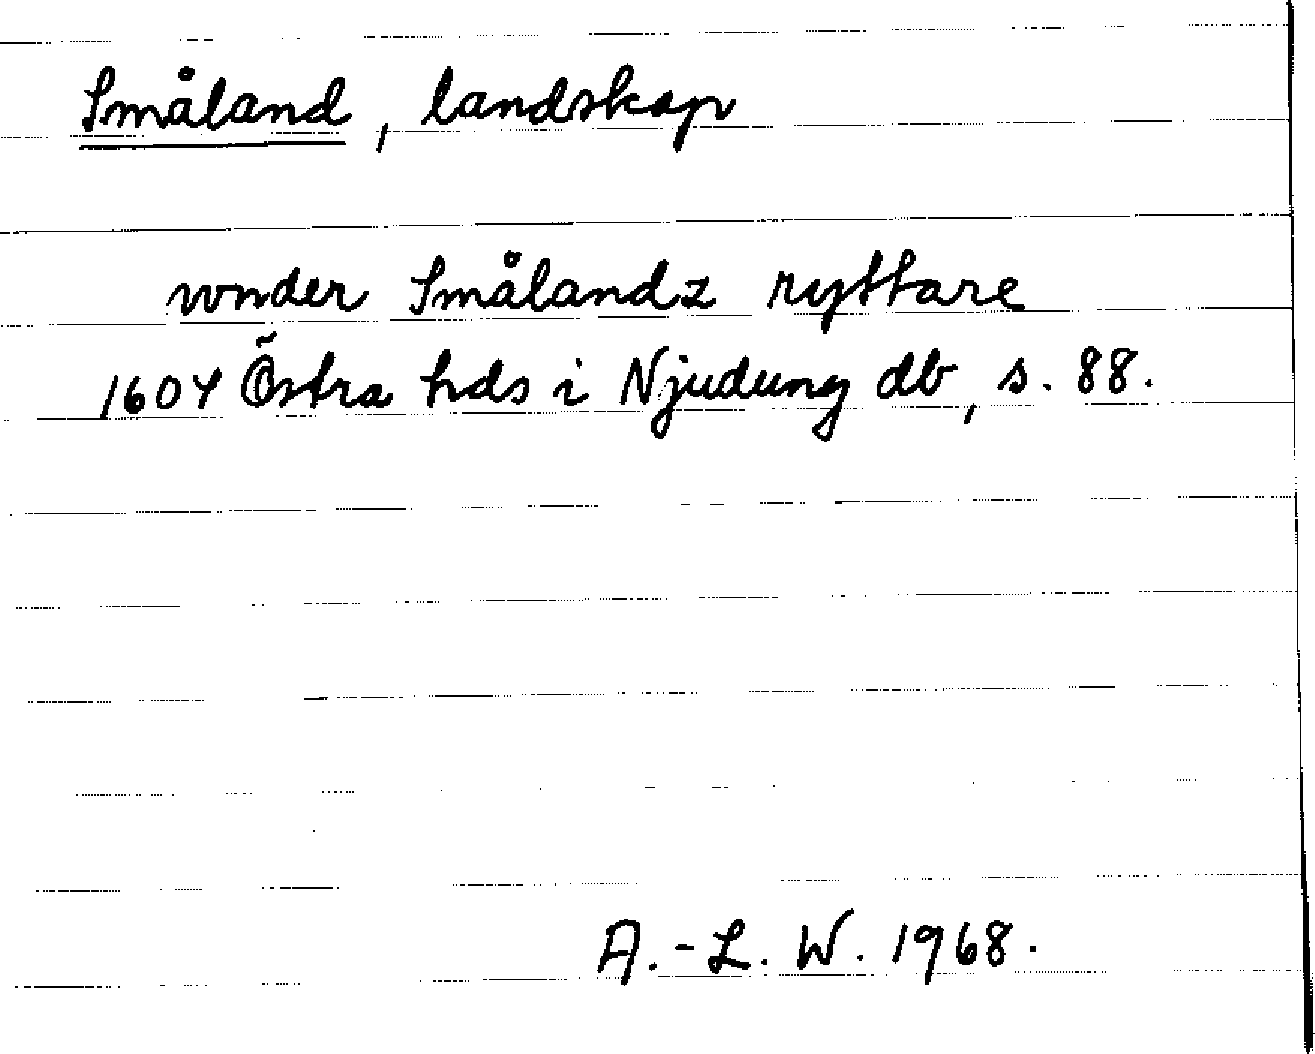 Småland, landskap
wnder Smålandz ryttare
1604 Östra hds i Njudung db, s. 88.
A.-L. W. 1968.